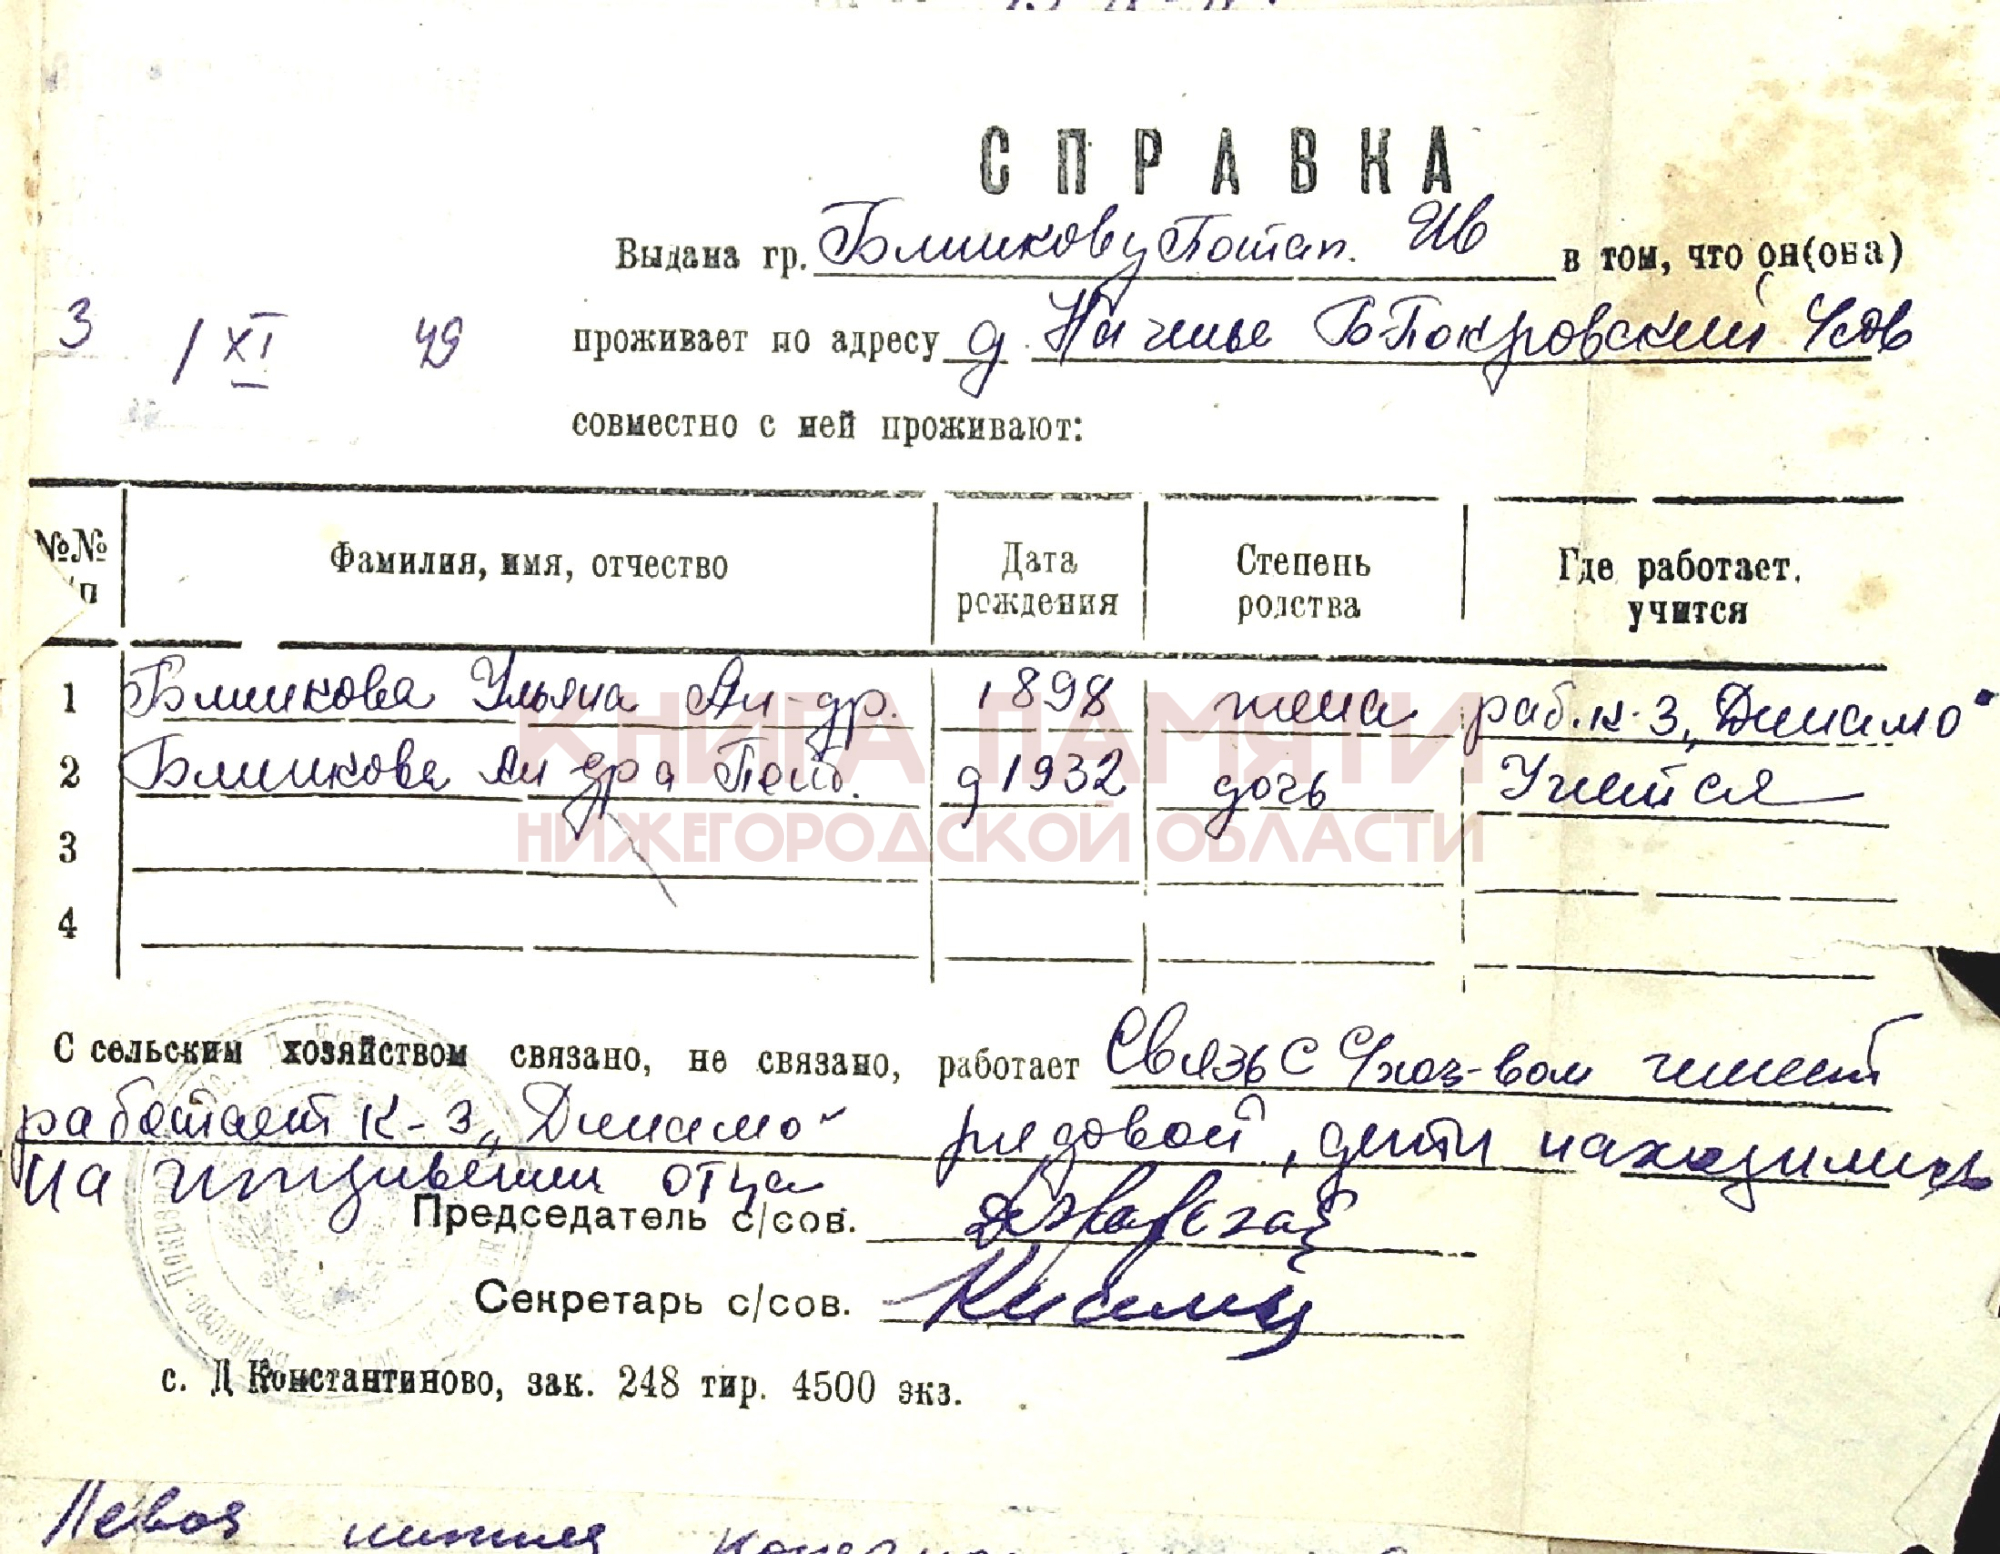 СПРАВКА
Выдана гр. Блинкову Потап. Ив в том, что он(она)
3 / XI 49 проживает по адресу д. Б-Покровский
совместно с ней проживают:
№№ п Фамилия, имя, отчество Дата рождения Степень родства Где работает, учится
1 Блинкова Ульяна Ан-др. 1898 жена раб. к-з „Динамо"
2 Блинкова 1932 дочь Учится
3
4
С сельским хозяйством связано, не связано, работает Связь с с/хоз-вом имеет
работает к-з „Динамо" рядовой, дети находились
на иждивении отца
Председатель с/сов.
Секретарь с/сов.
с. Д Константиново, зак. 248 тир. 4500 экз.
Левая нижняя
КНИГА ПАМЯТИ
НИЖЕГОРОДСКОЙ ОБЛАСТИ